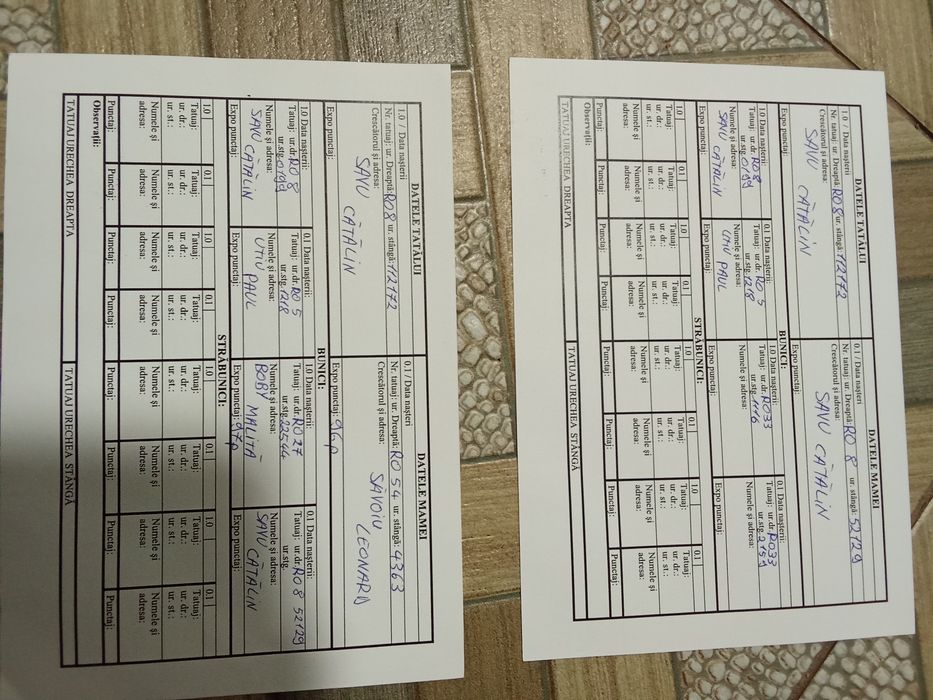 DATELE TATĂLUI DATELE MAMEI
1.0 / Data nașterii 0.1 / Data nașteri
Nr. tatuaj: ur. Dreaptă: RO 8 ur. stângă: 112172 Nr. tatuaj: ur. Dreaptă: RO 8 ur. stângă: 52129
Crescătorul și adresa: Crescătorul și adresa:
SAVU CĂTĂLIN SAVU CĂTĂLIN
Expo punctaj: Expo punctaj:
BUNICI:
1.0 Data nașterii: 0.1 Data nașterii: 1.0 Data nașterii: 0.1 Data nașterii:
Tatuaj: ur.dr. RO 8 Tatuaj: ur.dr. RO 5 Tatuaj: ur.dr. RO33 Tatuaj: ur.dr. RO33
ur.stg. 0199 ur.stg. 1218 ur.stg. 1116 ur.stg. 2159
Numele și adresa: Numele și adresa: Numele și adresa: Numele și adresa:
SAVU CĂTĂLIN UTIU PAUL
Expo punctaj: Expo punctaj: Expo punctaj: Expo punctaj:
STRĂBUNICI:
1.0 0.1 1.0 0.1 1.0 0.1 1.0 0.1
Tatuaj: Tatuaj: Tatuaj: Tatuaj: Tatuaj: Tatuaj: Tatuaj: Tatuaj:
ur. dr.: ur. dr.: ur. dr.: ur. dr.: ur. dr.: ur. dr.: ur. dr.: ur. dr.:
ur. st.: ur. st.: ur. st.: ur. st.: ur. st.: ur. st.: ur. st.: ur. st.:
Numele și Numele și Numele și Numele și Numele și Numele și Numele și Numele și
adresa: adresa: adresa: adresa: adresa: adresa: adresa: adresa:
Punctaj: Punctaj: Punctaj: Punctaj: Punctaj: Punctaj: Punctaj: Punctaj:
Observații:
TATUAJ URECHEA DREAPTA TATUAJ URECHEA STÂNGĂ
DATELE TATĂLUI DATELE MAMEI
1.0 / Data nașterii 0.1 / Data nașteri
Nr. tatuaj: ur. Dreaptă: RO 8 ur. stângă: 112172 Nr. tatuaj: ur. Dreaptă: RO 54 ur. stângă: 4363
Crescătorul și adresa: Crescătorul și adresa:
SAVU CĂTĂLIN SĂVOIU LEONARD
Expo punctaj: Expo punctaj: 96p
BUNICI:
1.0 Data nașterii: 0.1 Data nașterii: 1.0 Data nașterii: 0.1 Data nașterii:
Tatuaj: ur.dr. RO 8 Tatuaj: ur.dr. RO 5 Tatuaj: ur.dr. RO27 Tatuaj: ur.dr. RO 8 52129
ur.stg. 0199 ur.stg. 1218 ur.stg. 22544 ur.stg.
Numele și adresa: Numele și adresa: Numele și adresa: Numele și adresa:
SAVU CĂTĂLIN UTIU PAUL BOBY MALITĂ SAVU CĂTĂLIN
Expo punctaj: Expo punctaj: Expo punctaj: 97p Expo punctaj:
STRĂBUNICI:
1.0 0.1 1.0 0.1 1.0 0.1 1.0 0.1
Tatuaj: Tatuaj: Tatuaj: Tatuaj: Tatuaj: Tatuaj: Tatuaj: Tatuaj:
ur. dr.: ur. dr.: ur. dr.: ur. dr.: ur. dr.: ur. dr.: ur. dr.: ur. dr.:
ur. st.: ur. st.: ur. st.: ur. st.: ur. st.: ur. st.: ur. st.: ur. st.:
Numele și Numele și Numele și Numele și Numele și Numele și Numele și Numele și
adresa: adresa: adresa: adresa: adresa: adresa: adresa: adresa:
Punctaj: Punctaj: Punctaj: Punctaj: Punctaj: Punctaj: Punctaj: Punctaj:
Observații:
TATUAJ URECHEA DREAPTA TATUAJ URECHEA STÂNGĂ